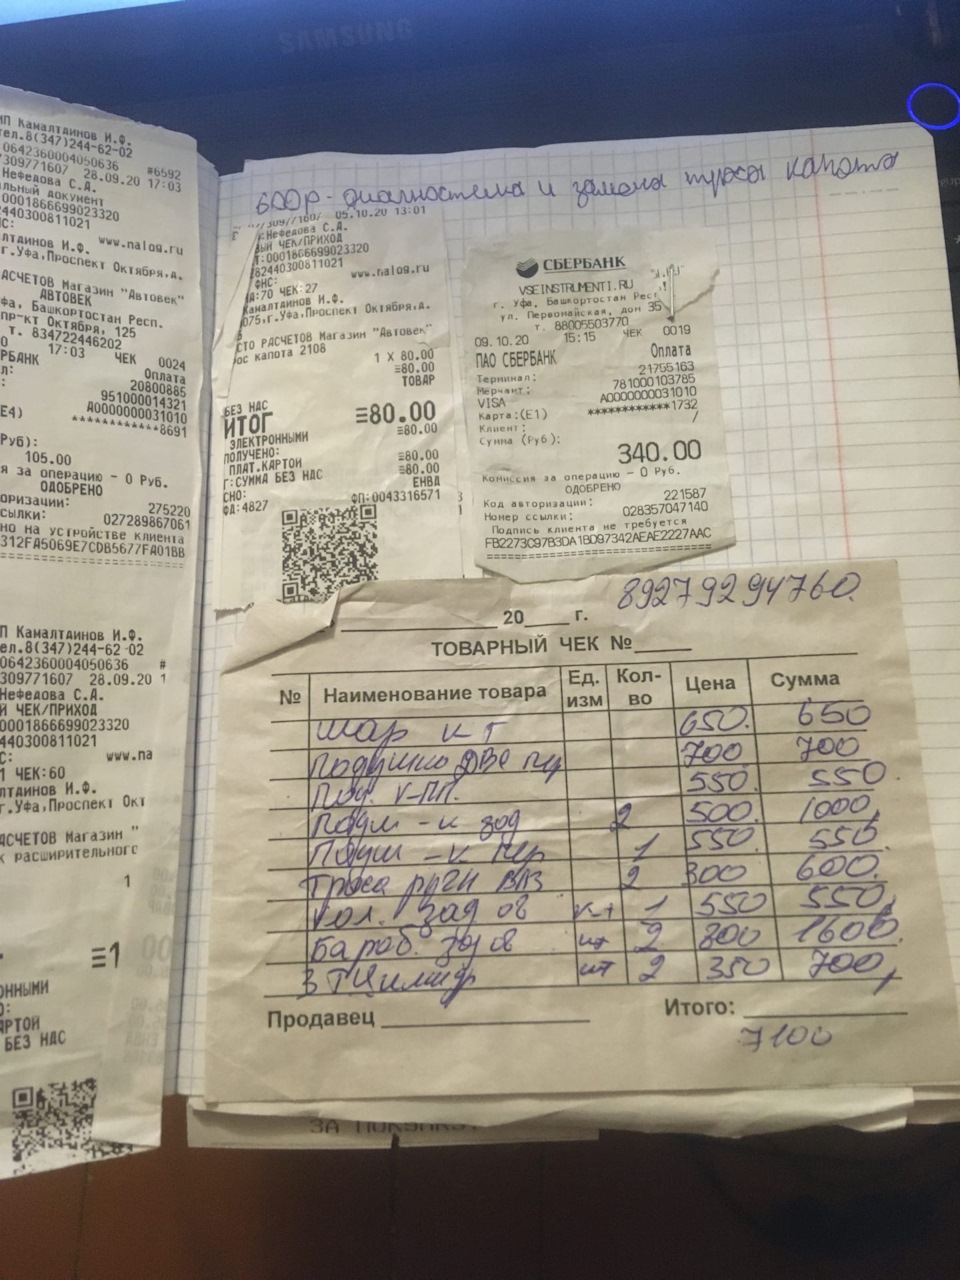 SAMSUNG
ИП Камалтдинов И.Ф.
тел.8(347)244-62-02
0642360004050636 #6592
309771607 28.09.20 17:03
Нефедова С.А.
0001866699023320
2440300811021
www.nalog.ru
алтдинов И.Ф.
г.Уфа,Проспект Октября,д.
АСЧЕТОВ Магазин "Автовек"
АВТОВЕК
Уфа, Башкортостан Респ.
пр-кт Октября, 125
т. 834722446202
17:03 ЧЕК 0024
РБАНК Оплата
20800885
951000014321
A0000000031010
(E4) ************8691
Руб):
105.00
я за операцию – 0 Руб.
ОДОБРЕНО
оризации: 275220
сылки: 027289867061
но на устройстве клиента
312FA5069E7CDB5677FA01BB
ИП Камалтдинов И.Ф.
тел.8(347)244-62-02
0642360004050636 #
309771607 28.09.20 1
Нефедова С.А.
Й ЧЕК/ПРИХОД
0001866699023320
440300811021
С: www.na
1 ЧЕК:60
лтдинов И.Ф.
г.Уфа,Проспект Окт
АСЧЕТОВ Магазин "
к расширительного
1
≡1
ОННЫМИ
О:
АРТОЙ
БЕЗ НДС
600р - диагностика и замена троса капота
05.10.20 13:01
Нефедова С.А.
ВЫЙ ЧЕК/ПРИХОД
Т:0001866699023320
782440300811021
ФНС: www.nalog.ru
А:70 ЧЕК:27
Камалтдинов И.Ф.
075,г.Уфа,Проспект Октября,д.
5
СТО РАСЧЕТОВ Магазин "Автовек"
рос капота 2108
1 X 80.00
≡80.00
ТОВАР
БЕЗ НДС
ИТОГ ≡80.00
ЭЛЕКТРОННЫМИ ≡80.00
ПОЛУЧЕНО:
ПЛАТ.КАРТОЙ ≡80.00
Г:СУММА БЕЗ НДС ≡80.00
СНО: ЕНВД
ФД:4827 ФП:0043316571
СБЕРБАНК
VSEINSTRUMENTI.RU
г. Уфа, Башкортостан Респ
ул. Первомайская, дом 35
т. 88005503770
09.10.20 15:15 ЧЕК 0019
ПАО СБЕРБАНК Оплата
Терминал: 21755163
Мерчант: 781000103785
VISA A0000000031010
Карта:(E1) ************1732
Клиент: /
Сумма (Руб):
340.00
Комиссия за операцию – 0 Руб.
ОДОБРЕНО
Код авторизации: 221587
Номер ссылки: 028357047140
Подпись клиента не требуется
FB2273C97B3DA1BD97342AEAE2227AAC
89279294760.
20 г.
ТОВАРНЫЙ ЧЕК №
№ Наименование товара Ед. изм Кол-во Цена Сумма
шар к т 650. 650
Подушка ДВС пер 700 700
Под. КПП. 550. 550.
Подш - к зад 2 500. 1000,
Подш - к пер 1 550. 550
Троса ручн ВАЗ 2 300 600.
Кол. зад 08 к-т 1 550 550,
Бараб. зад 08 шт 2 800 1600.
З Т Цилиндр шт 2 350 700,
Продавец Итого:
7100
ЗА ПОКУПКУ